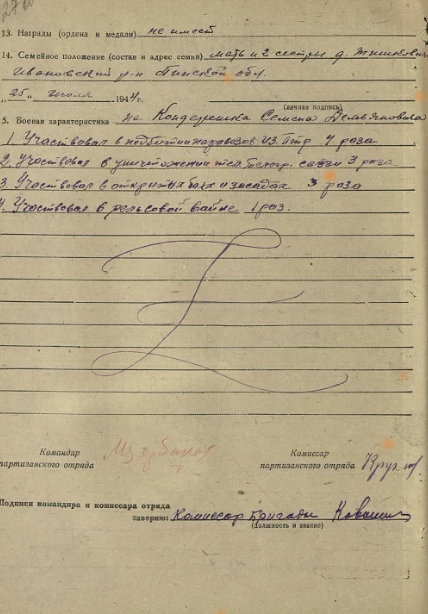 13. Награды (ордена и медали) не имеет
14. Семейное положение (состав и адрес семьи) мать и 2 сестры д.
Ивановский р-н Пинской обл.
„25" июля 1944 г.
(личная подпись)
5. Боевая характеристика на Семена Демьяновича
1. Участвовал в паровозов из птр 4 раза
2. Участвовал в уничтожении телегр. связи 3 раза
3. Участвовал в открытых боях и засадах 3 раза
4. Участвовал в рельсовой вайне 1 раз.
Командир
партизанского отряда
Комиссар
партизанского отряда
Подписи командира и комиссара отряда
заверяю: Комиссар бригады
(должность и звание)